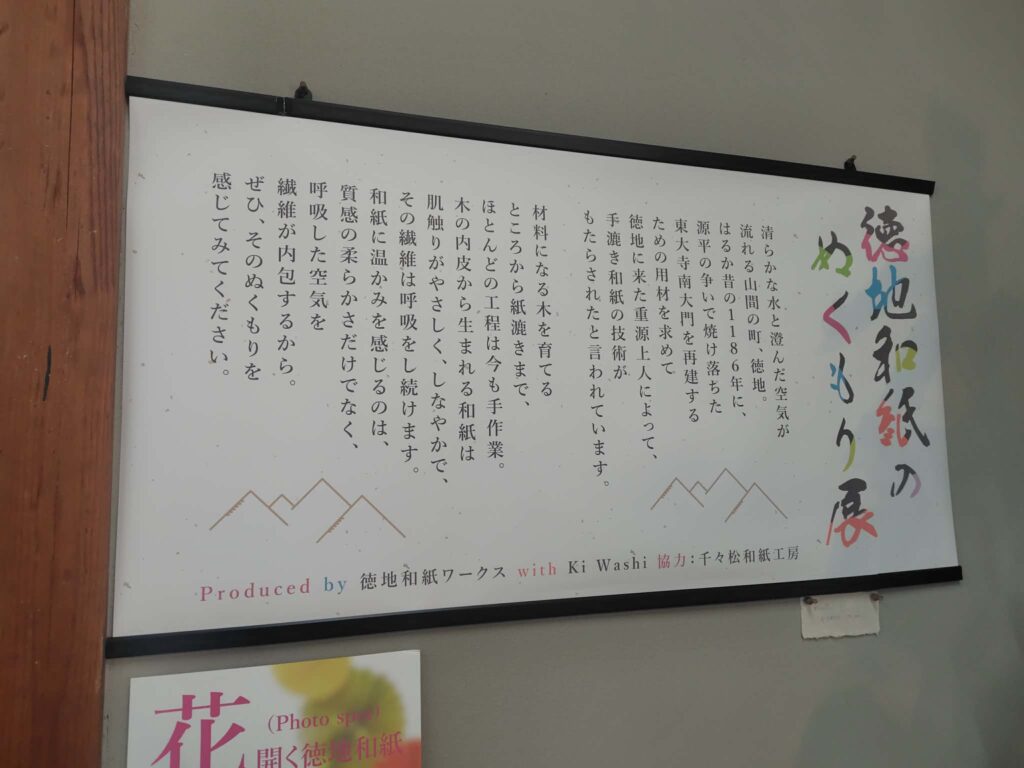 徳地和紙の
ぬくもり展
清らかな水と澄んだ空気が
流れる山間の町、徳地。
はるか昔の1186年に、
源平の争いで焼け落ちた
東大寺南大門を再建する
ための用材を求めて
徳地に来た重源上人によって、
手漉き和紙の技術が
もたらされたと言われています。
材料になる木を育てる
ところから紙漉きまで、
ほとんどの工程は今も手作業。
木の内皮から生まれる和紙は
肌触りがやさしく、しなやかで、
その繊維は呼吸をし続けます。
和紙に温かみを感じるのは、
質感の柔らかさだけでなく、
呼吸した空気を
繊維が内包するから。
ぜひ、そのぬくもりを
感じてみてください。
Produced by 徳地和紙ワークス with Ki Washi 協力：千々松和紙工房
花
(Photo spot)
開く徳地和紙